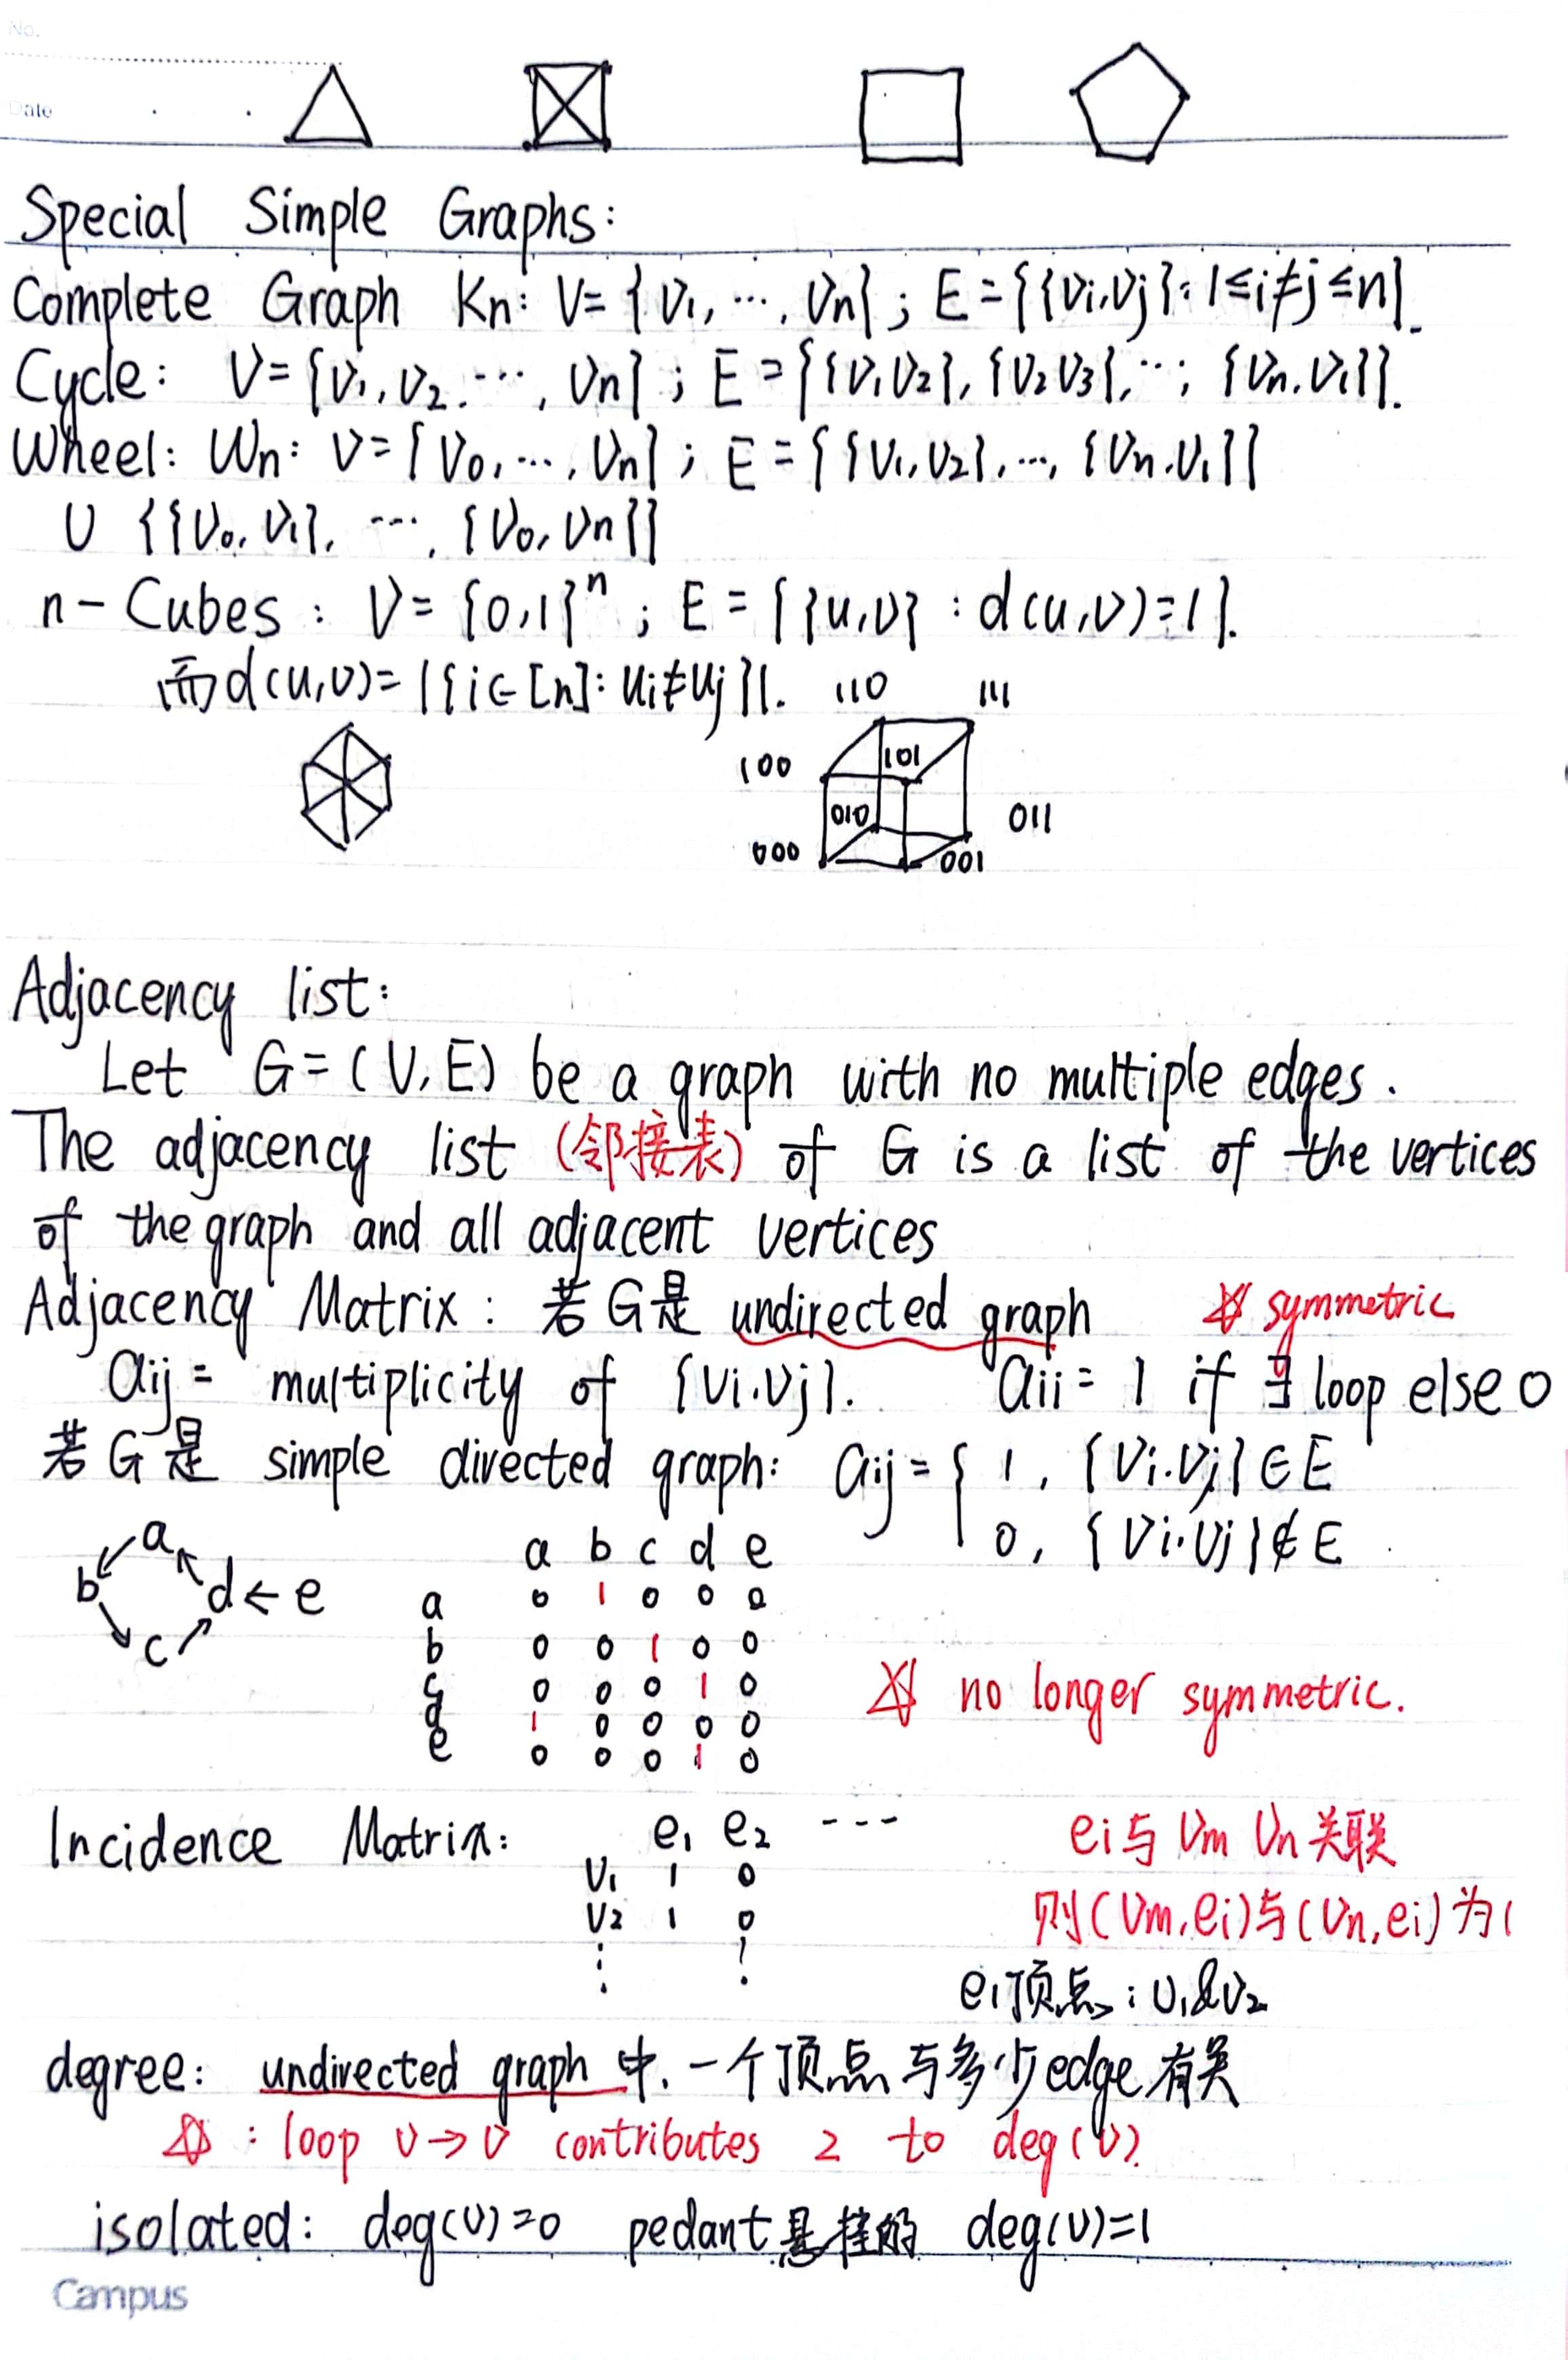 No.
Date
Special Simple Graphs:
Complete Graph Kn: V={v1, ..., vn}; E={{vi,vj}: 1≤i≠j≤n}.
Cycle: V={v1, v2, ..., vn}; E={{v1v2}, {v2v3}, ..., {vn,v1}}.
Wheel: Wn: V={v0, ..., vn}; E={{v1,v2}, ..., {vn,v1}}
∪ {{v0,v1}, ..., {v0,vn}}
n-Cubes: V={0,1}ⁿ; E={{u,v}: d(u,v)=1}.
而d(u,v)=|{i∈[n]: ui≠uj}|. 110 111
100 101
010 011
000 001
Adjacency list:
Let G=(V,E) be a graph with no multiple edges.
The adjacency list (邻接表) of G is a list of the vertices
of the graph and all adjacent vertices
Adjacency Matrix: 若G是 undirected graph ☆ symmetric
aij = multiplicity of {vi.vj}. aii = 1 if ∃ loop else 0
若G是 simple directed graph: aij = { 1, {vi.vj}∈E
0, {vi.vj}∉E
a b c d e
a 0 1 0 0 0
b 0 0 1 0 0
c 0 0 0 1 0
d 1 0 0 0 0
e 0 0 0 1 0
a
b d ← e
c
☆ no longer symmetric.
Incidence Matrix: e1 e2 --- ei与vm vn关联
v1 1 0
v2 1 0 则(vm,ei)与(vn,ei)为1
e1顶点: v1&v2
degree: undirected graph 中. 一个顶点与多少edge有关
☆: loop v→v contributes 2 to deg(v).
isolated: deg(v)=0 pedant悬挂的 deg(v)=1
Campus